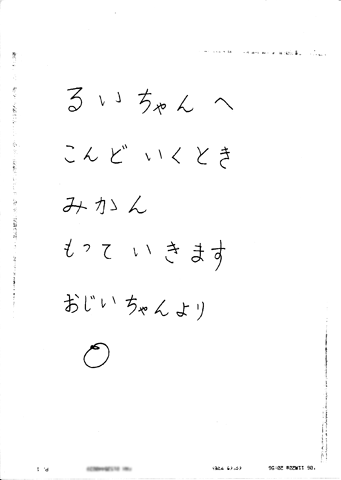 るいちゃんへ
こんどいくとき
みかん
もっていきます
おじいちゃんより